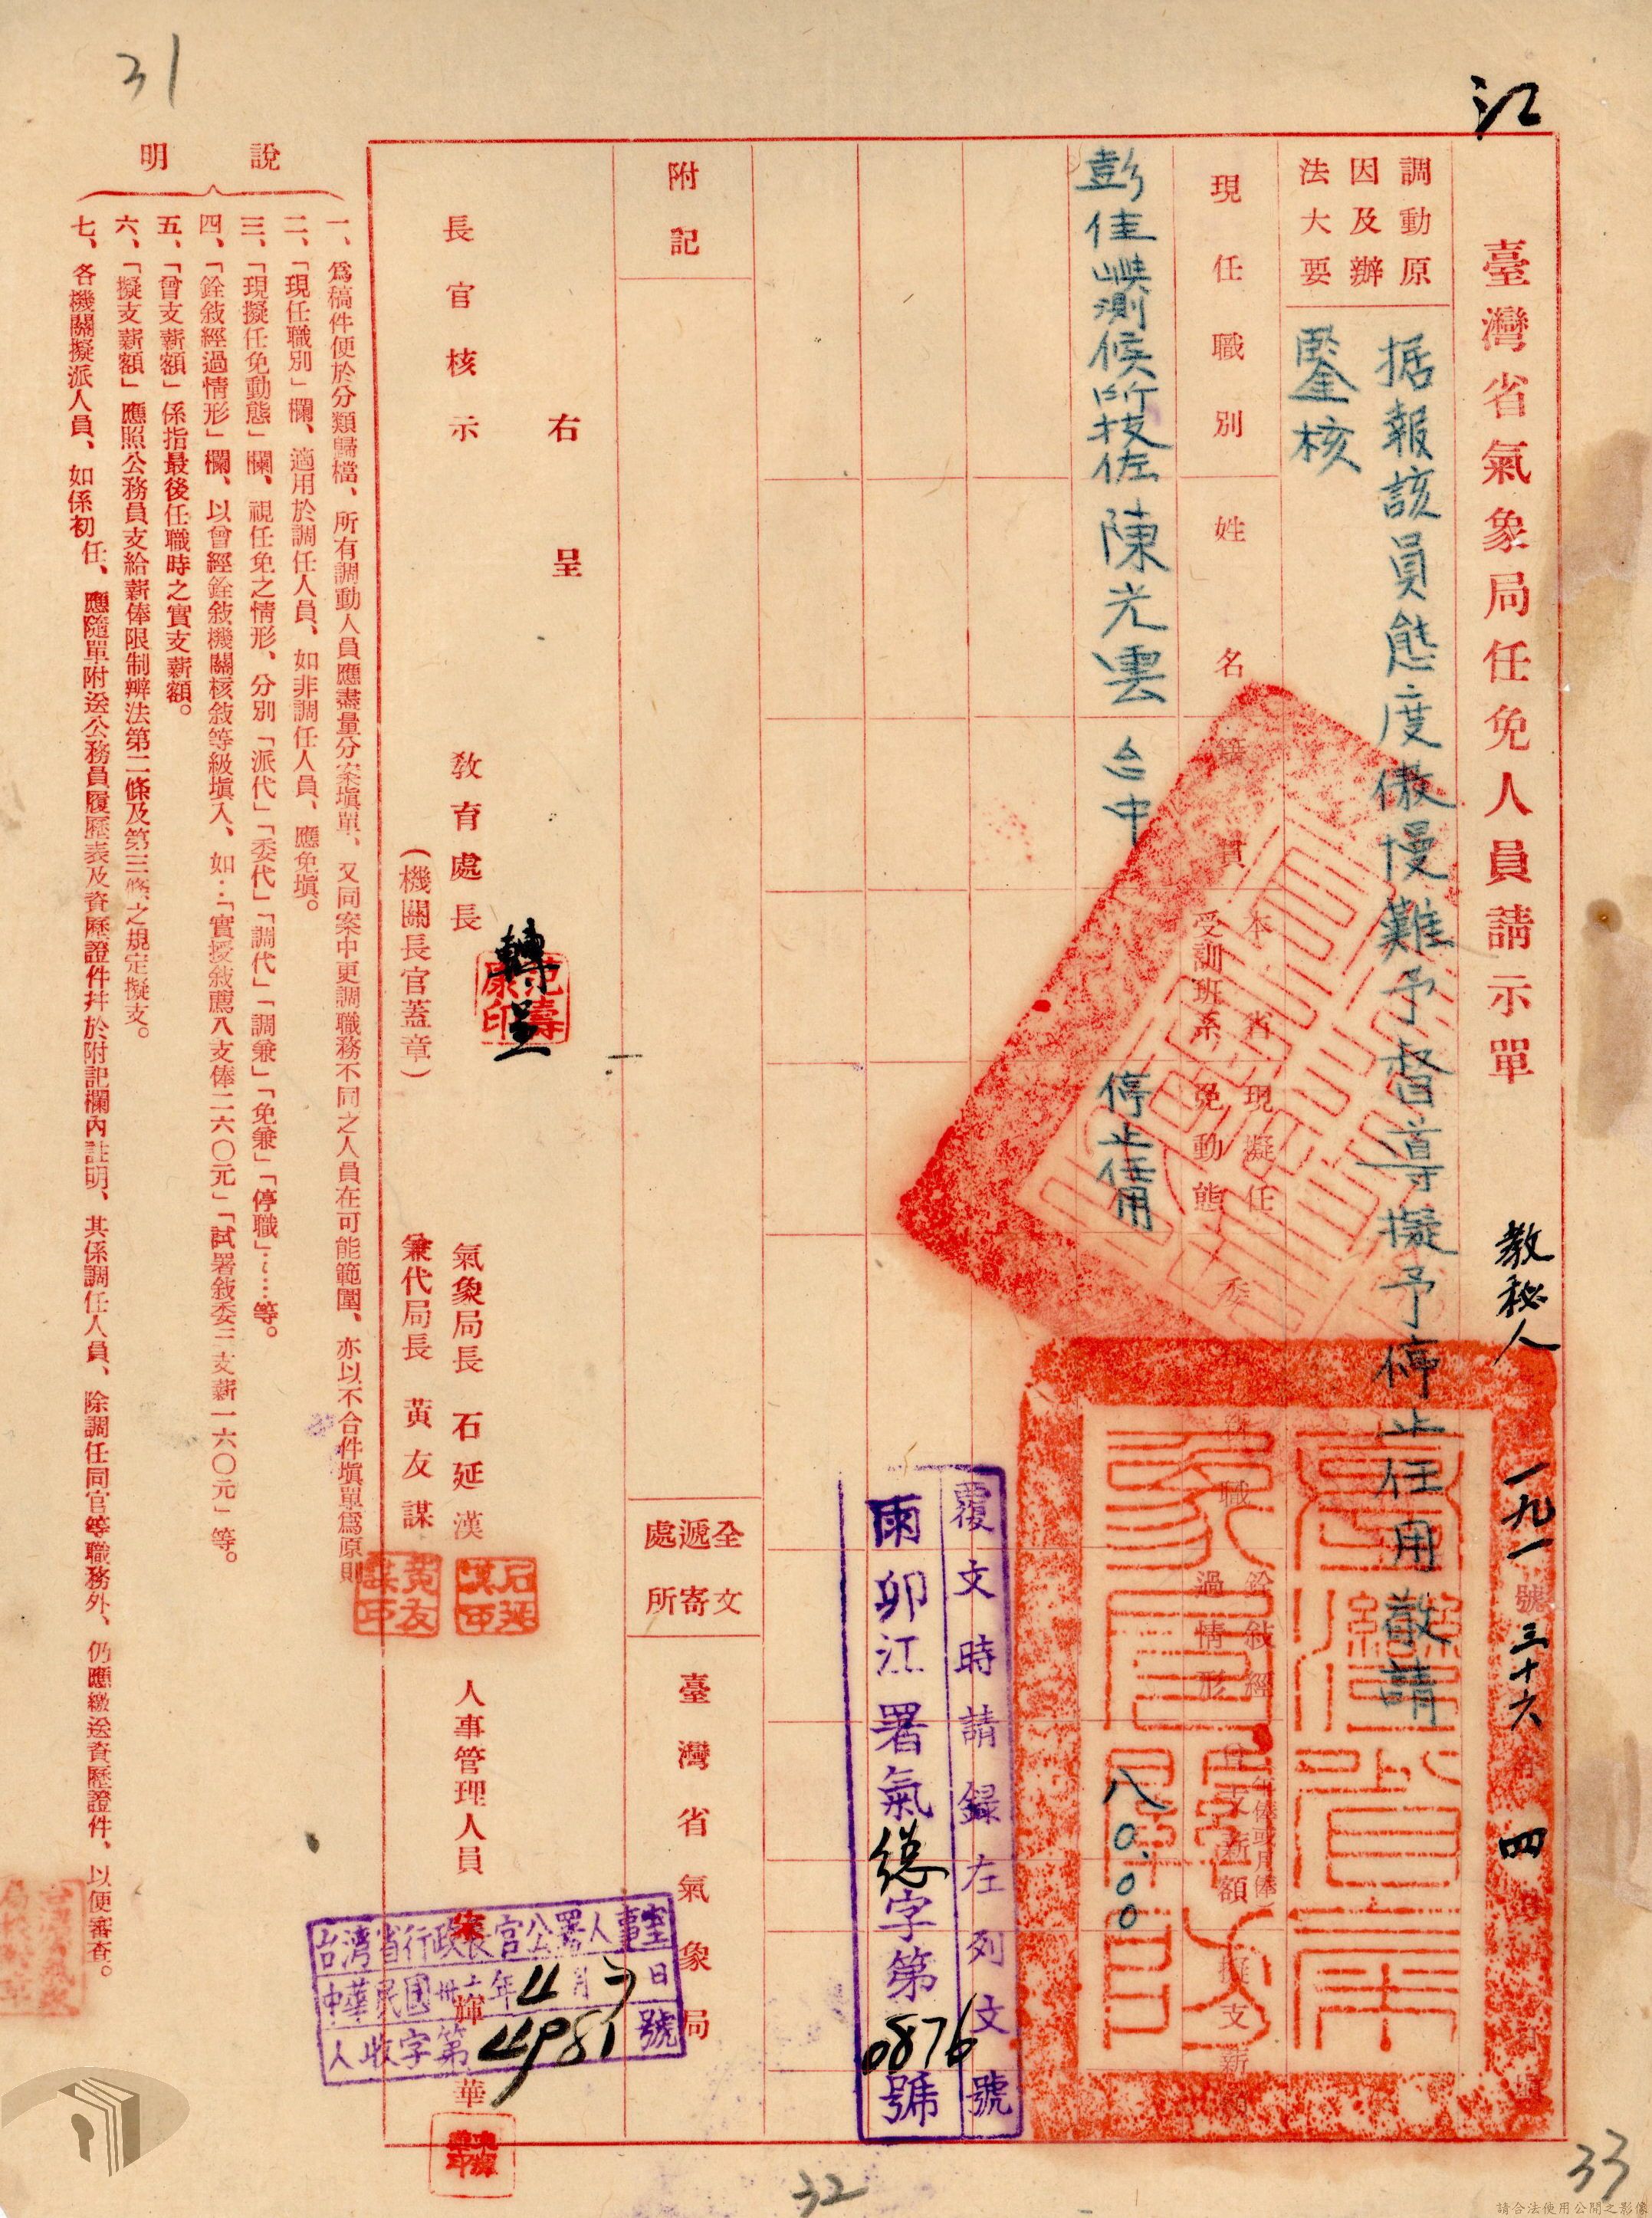 31
江
臺灣省氣象局任免人員請示單
教秘人
一九一號
三十六年四月
調動原
因及辦
法大要
据報該員態度傲慢難予督導擬予停止任用敬請
鑒核
現任職別
姓名
籍貫
本省
受訓班系
現擬任
免動態
銓敍經
過情形
年俸或月俸
擬支薪額
彭佳嶼測候所技佐
陳光雲
台中
停止任用
八0.00
覆文時請錄左列文號
兩卯江署氣總字第0876號
附記
全文
遞寄
處所
臺灣省氣象局
右呈
長官核示
教育處長
轉呈
范壽康印
(機關長官蓋章)
氣象局長 石延漢
石延漢印
兼代局長 黃友謀
黃友謀印
人事管理人員
輝華
台灣省行政長官公署人事室
中華民國卅六年4月 日
人收字第4981號
說明
一、爲稿件便於分類歸檔、所有調動人員應盡量分案塡單、又同案中更調職務不同之人員在可能範圍、亦以不合件塡單爲原則
二、「現任職別」欄、適用於調任人員、如非調任人員、應免塡。
三、「現擬任免動態」欄、視任免之情形、分別「派代」「委代」「調代」「調兼」「免兼」「停職」……等。
四、「銓敍經過情形」欄、以曾經銓敍機關核敍等級塡入、如…「實授敍薦八支俸二六〇元」「試署敍委三支薪一六〇元」等。
五、「曾支薪額」係指最後任職時之實支薪額。
六、「擬支薪額」應照公務員支給薪俸限制辦法第二條及第三條之規定擬支。
七、各機關擬派人員、如係初任、應隨單附送公務員履歷表及資歷證件幷於附記欄內註明、其係調任人員、除調任同官等職務外、仍應繳送資歷證件、以便審查。
32
33
請合法使用公開之影像